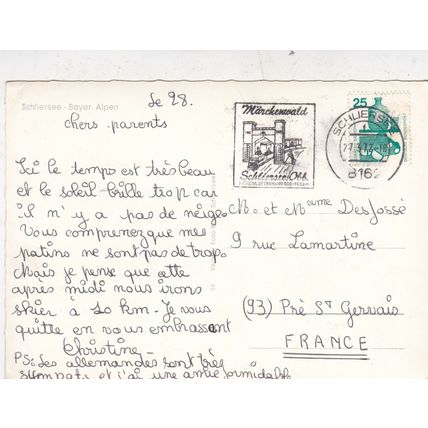 Schliersee - Bayer. Alpen
Le 28.
chers parents
Ici le temps est très beau
et le soleil brille trop car
il n'y a pas de neige
Vous comprenez que mes
patins ne sont pas de trop.
Mais je pense que cette
après midi nous irons
skier à 20 km. Je vous
quitte en vous embrassant
Christine-
PS: Les allemandes sont très
sympats et j'ai une amie formidable
Märchenwald
Schliersee/Obb.
25
SCHLIERSEE
8162
M. et Mme DesJossé
9 rue Lamartine
(93) Pré St Gervais
FRANCE